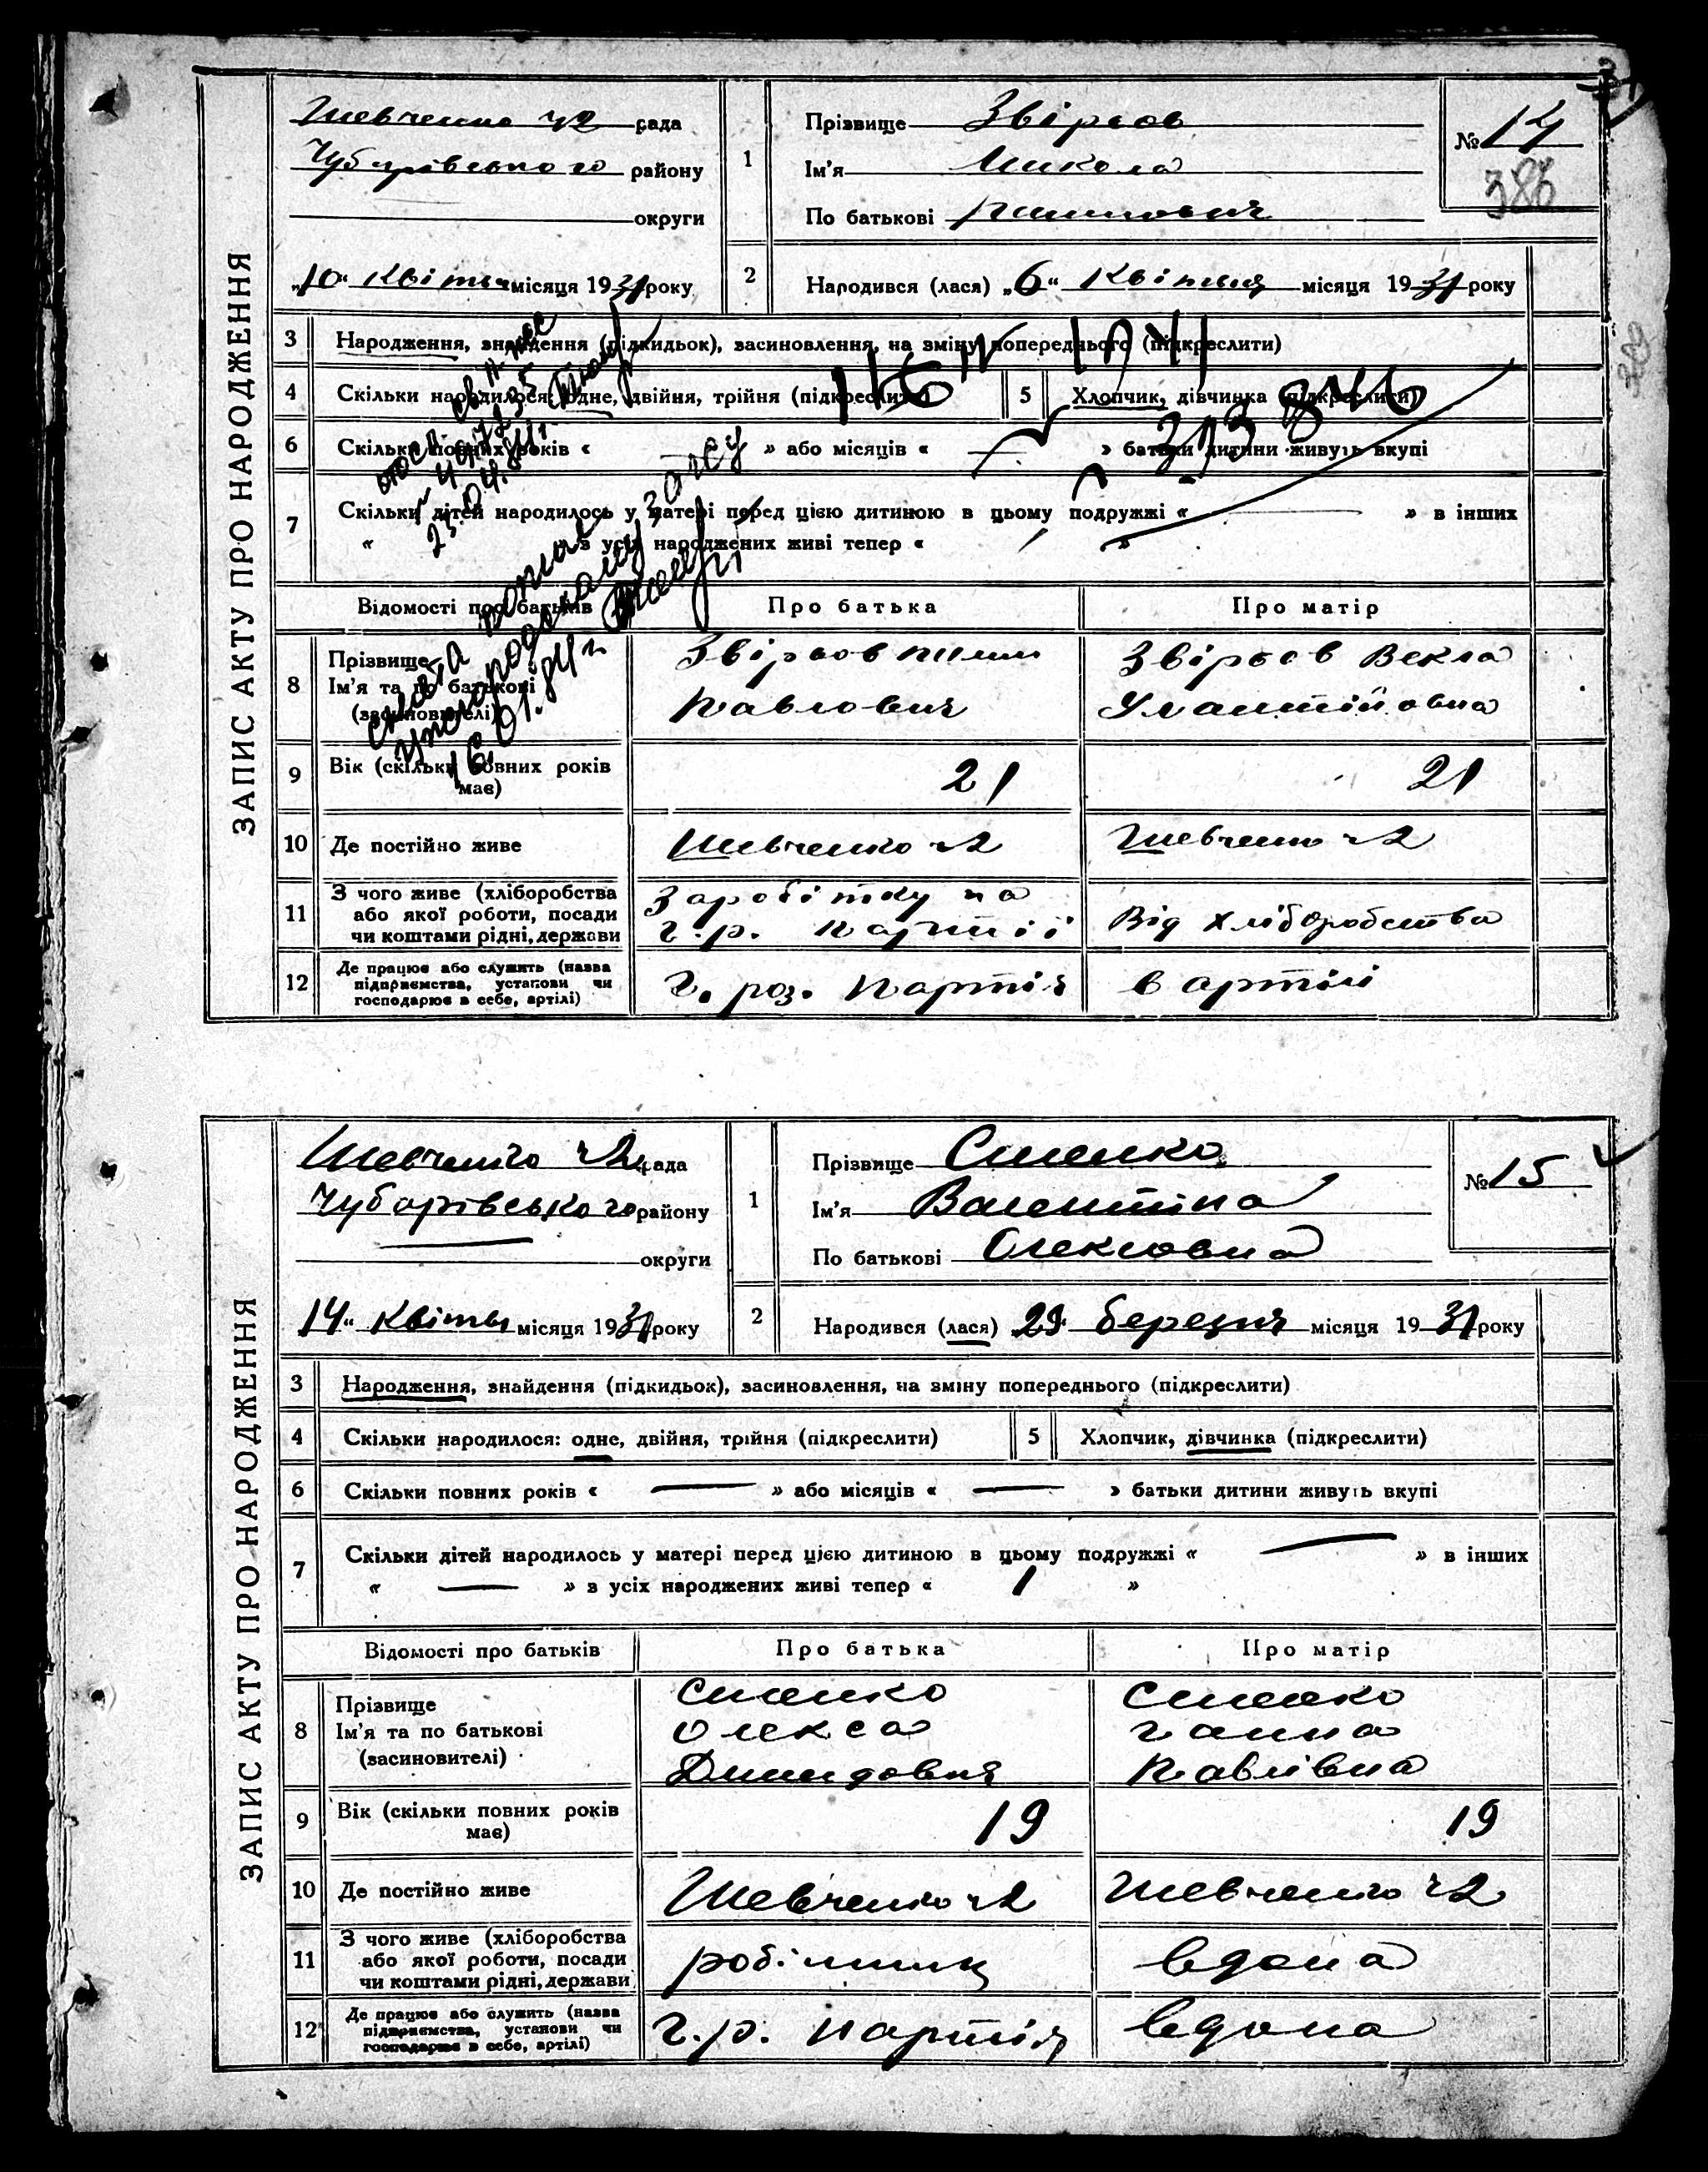 ЗАПИС АКТУ ПРО НАРОДЖЕННЯ
Шевченко ч2 рада
Чубарівського району
округи
„10“ Квітня місяця 1931 року
1
Прізвище Звірьов
Ім'я Микола
По батькові
№ 14
386
2
Народився (лася) „6“ Квітня місяця 1931 року
3 Народження, знайдення (підкидьок), засиновлення, на зміну попереднього (підкреслити)
4 Скільки народилося: одне, двійня, трійня (підкреслити)
5 Хлопчик, дівчинка (підкреслити)
6 Скільки повних років « » або місяців « » батьки дитини живуть вкупі
7 Скільки дітей народилось у матері перед цією дитиною в цьому подружжі « » в інших
« » в усіх народжених живі тепер « »
Відомості про батьків Про батька Про матір
8 Прізвище
Ім'я та по батькові
(засиновителі)
Звірьов
Павлович
Звірьов Векла
9 Вік (скільки повних років має) 21 21
10 Де постійно живе Шевченко ч2 Шевченко ч2
11 З чого живе (хліборобства
або якої роботи, посади
чи коштами рідні, держави
Заробітку на
г.р. Партії
Від хліборобства
12 Де працює або служить (назва
підприємства, установи чи
господарює в себе, артілі)
г. роз. Партія
в артілі
16.01.84 г.
ЗАПИС АКТУ ПРО НАРОДЖЕННЯ
Шевченко ч2 рада
Чубарівського району
округи
14“ Квітня місяця 1931 року
1
Прізвище
Ім'я Валентіна
По батькові Олексовна
№ 15
2
Народився (лася) „29“ березня місяця 1931 року
3 Народження, знайдення (підкидьок), засиновлення, на зміну попереднього (підкреслити)
4 Скільки народилося: одне, двійня, трійня (підкреслити)
5 Хлопчик, дівчинка (підкреслити)
6 Скільки повних років « — » або місяців « — » батьки дитини живуть вкупі
7 Скільки дітей народилось у матері перед цією дитиною в цьому подружжі « — » в інших
« — » в усіх народжених живі тепер « 1 »
Відомості про батьків Про батька Про матір
8 Прізвище
Ім'я та по батькові
(засиновителі)
Олекса
Ганна
Павлівна
9 Вік (скільки повних років має) 19 19
10 Де постійно живе Шевченко ч2 Шевченко ч2
11 З чого живе (хліборобства
або якої роботи, посади
чи коштами рідні, держави
робітник
вдома
12 Де працює або служить (назва
підприємства, установи чи
господарює в себе, артілі)
г.р. партія
вдома